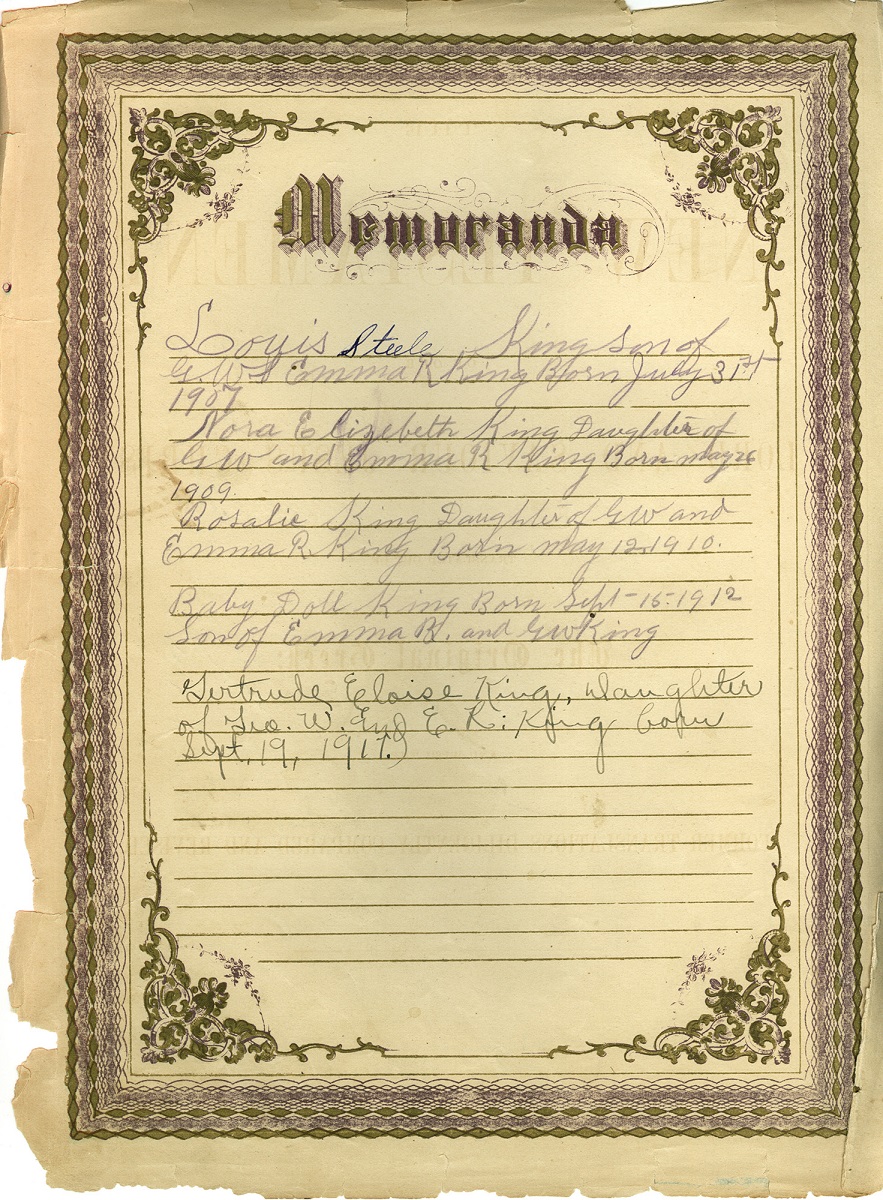 Memoranda
Louis Steele King Son of
G.W. & Emma R King Born July 31st
1907
Nora Elizebeth King Daughter of
G W and Emma R King Born may 26
1909.
Rosalie King Daughter of G W and
Emma R King Born may 12.1910.
Baby Doll King Born Sept-15-1912
Son of Emma R. and G W King
Gertrude Eloise King, daughter
of Geo. W. And E. R. King born
Sept. 19, 1917.